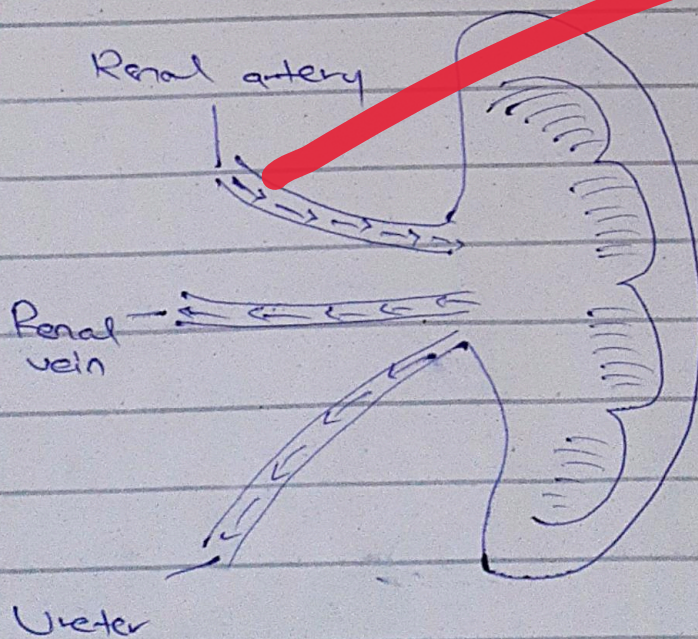 Renal artery
Renal
vein
Ureter